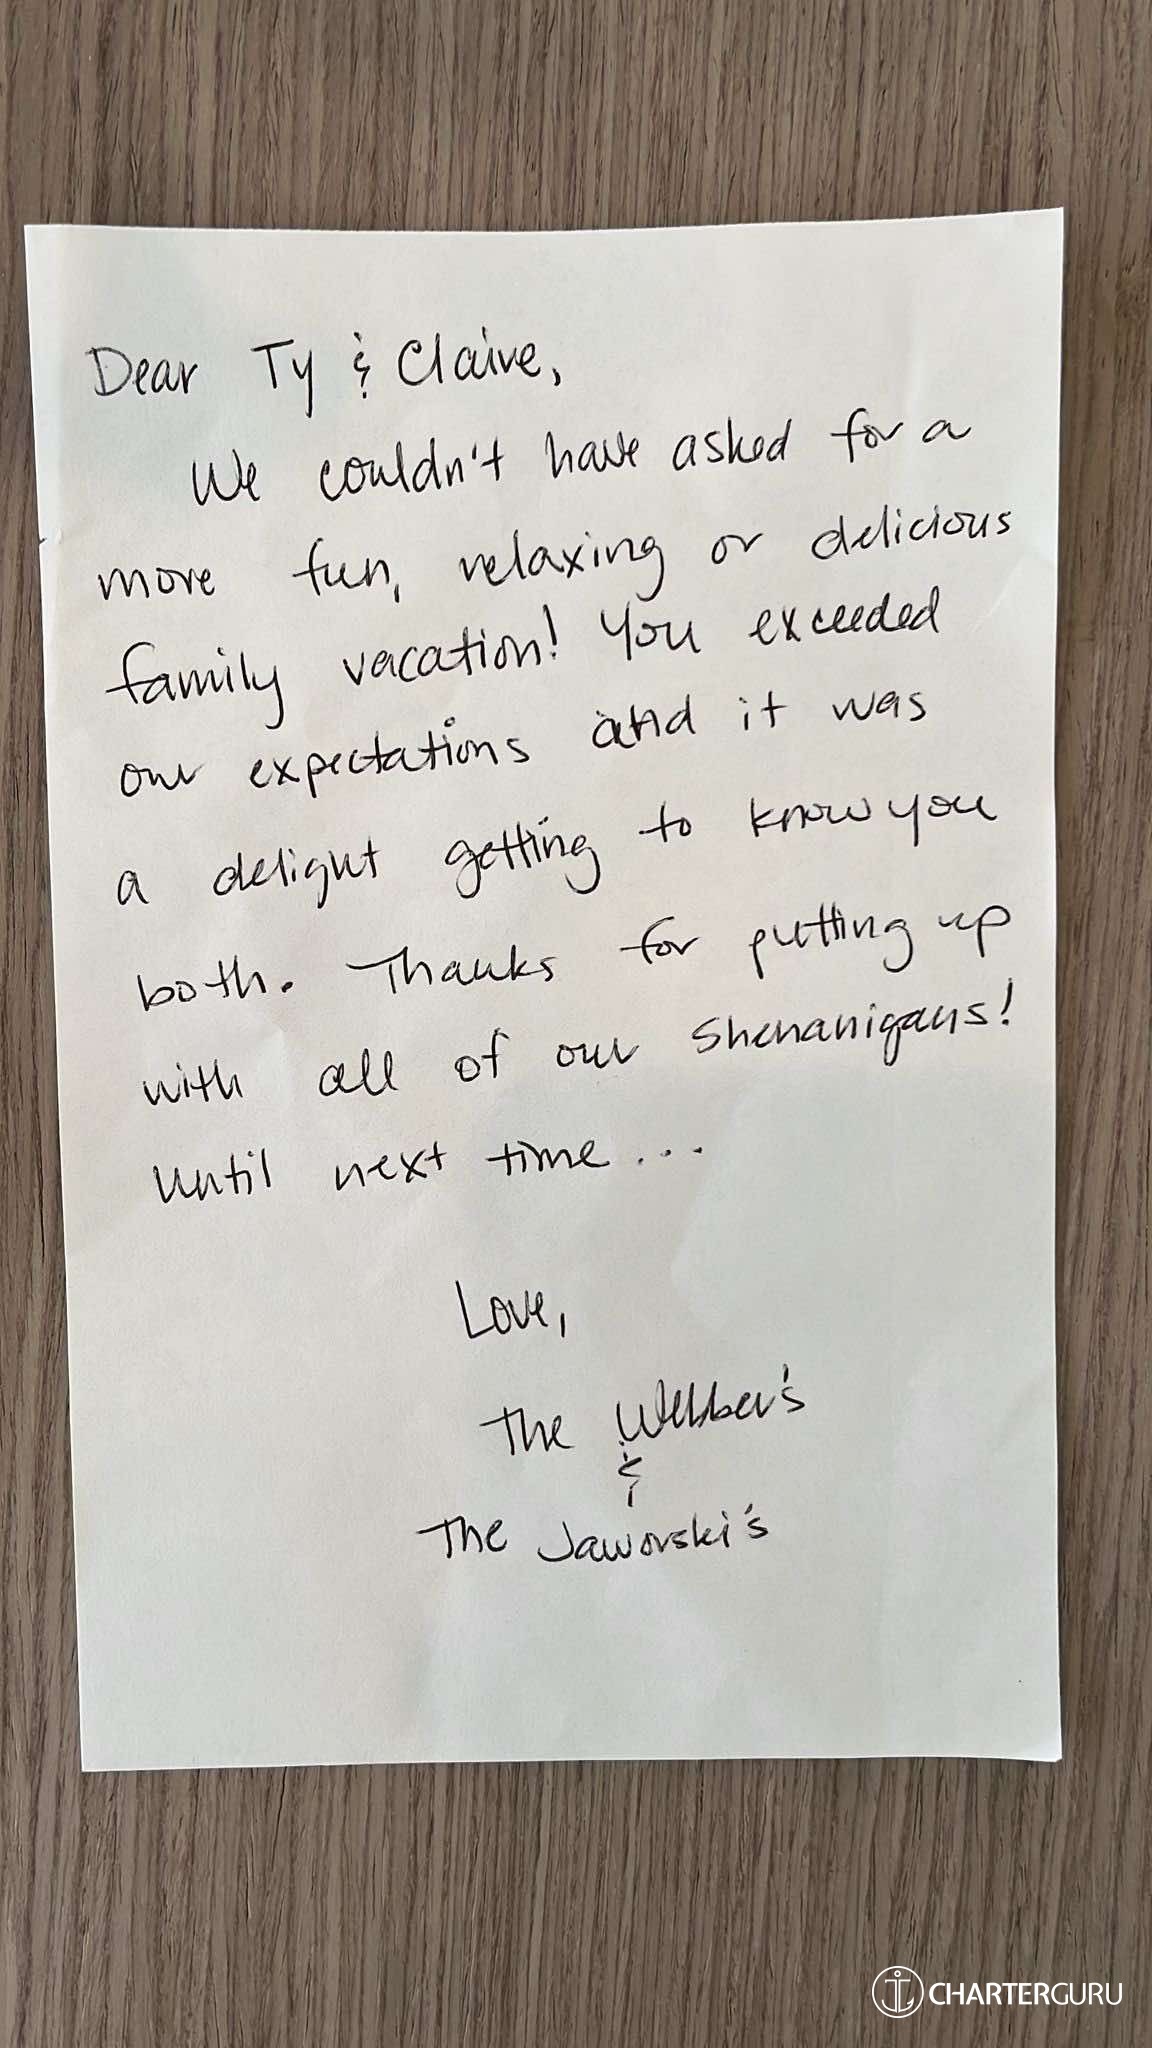 Dear Ty & Claire,
We couldn't have asked for a
more fun, relaxing or delicious
family vacation! You exceeded
our expectations and it was
a delight getting to know you
both. Thanks for putting up
with all of our shenanigans!
Until next time...
Love,
The Webber's
&
The Jaworski's
CHARTERGURU